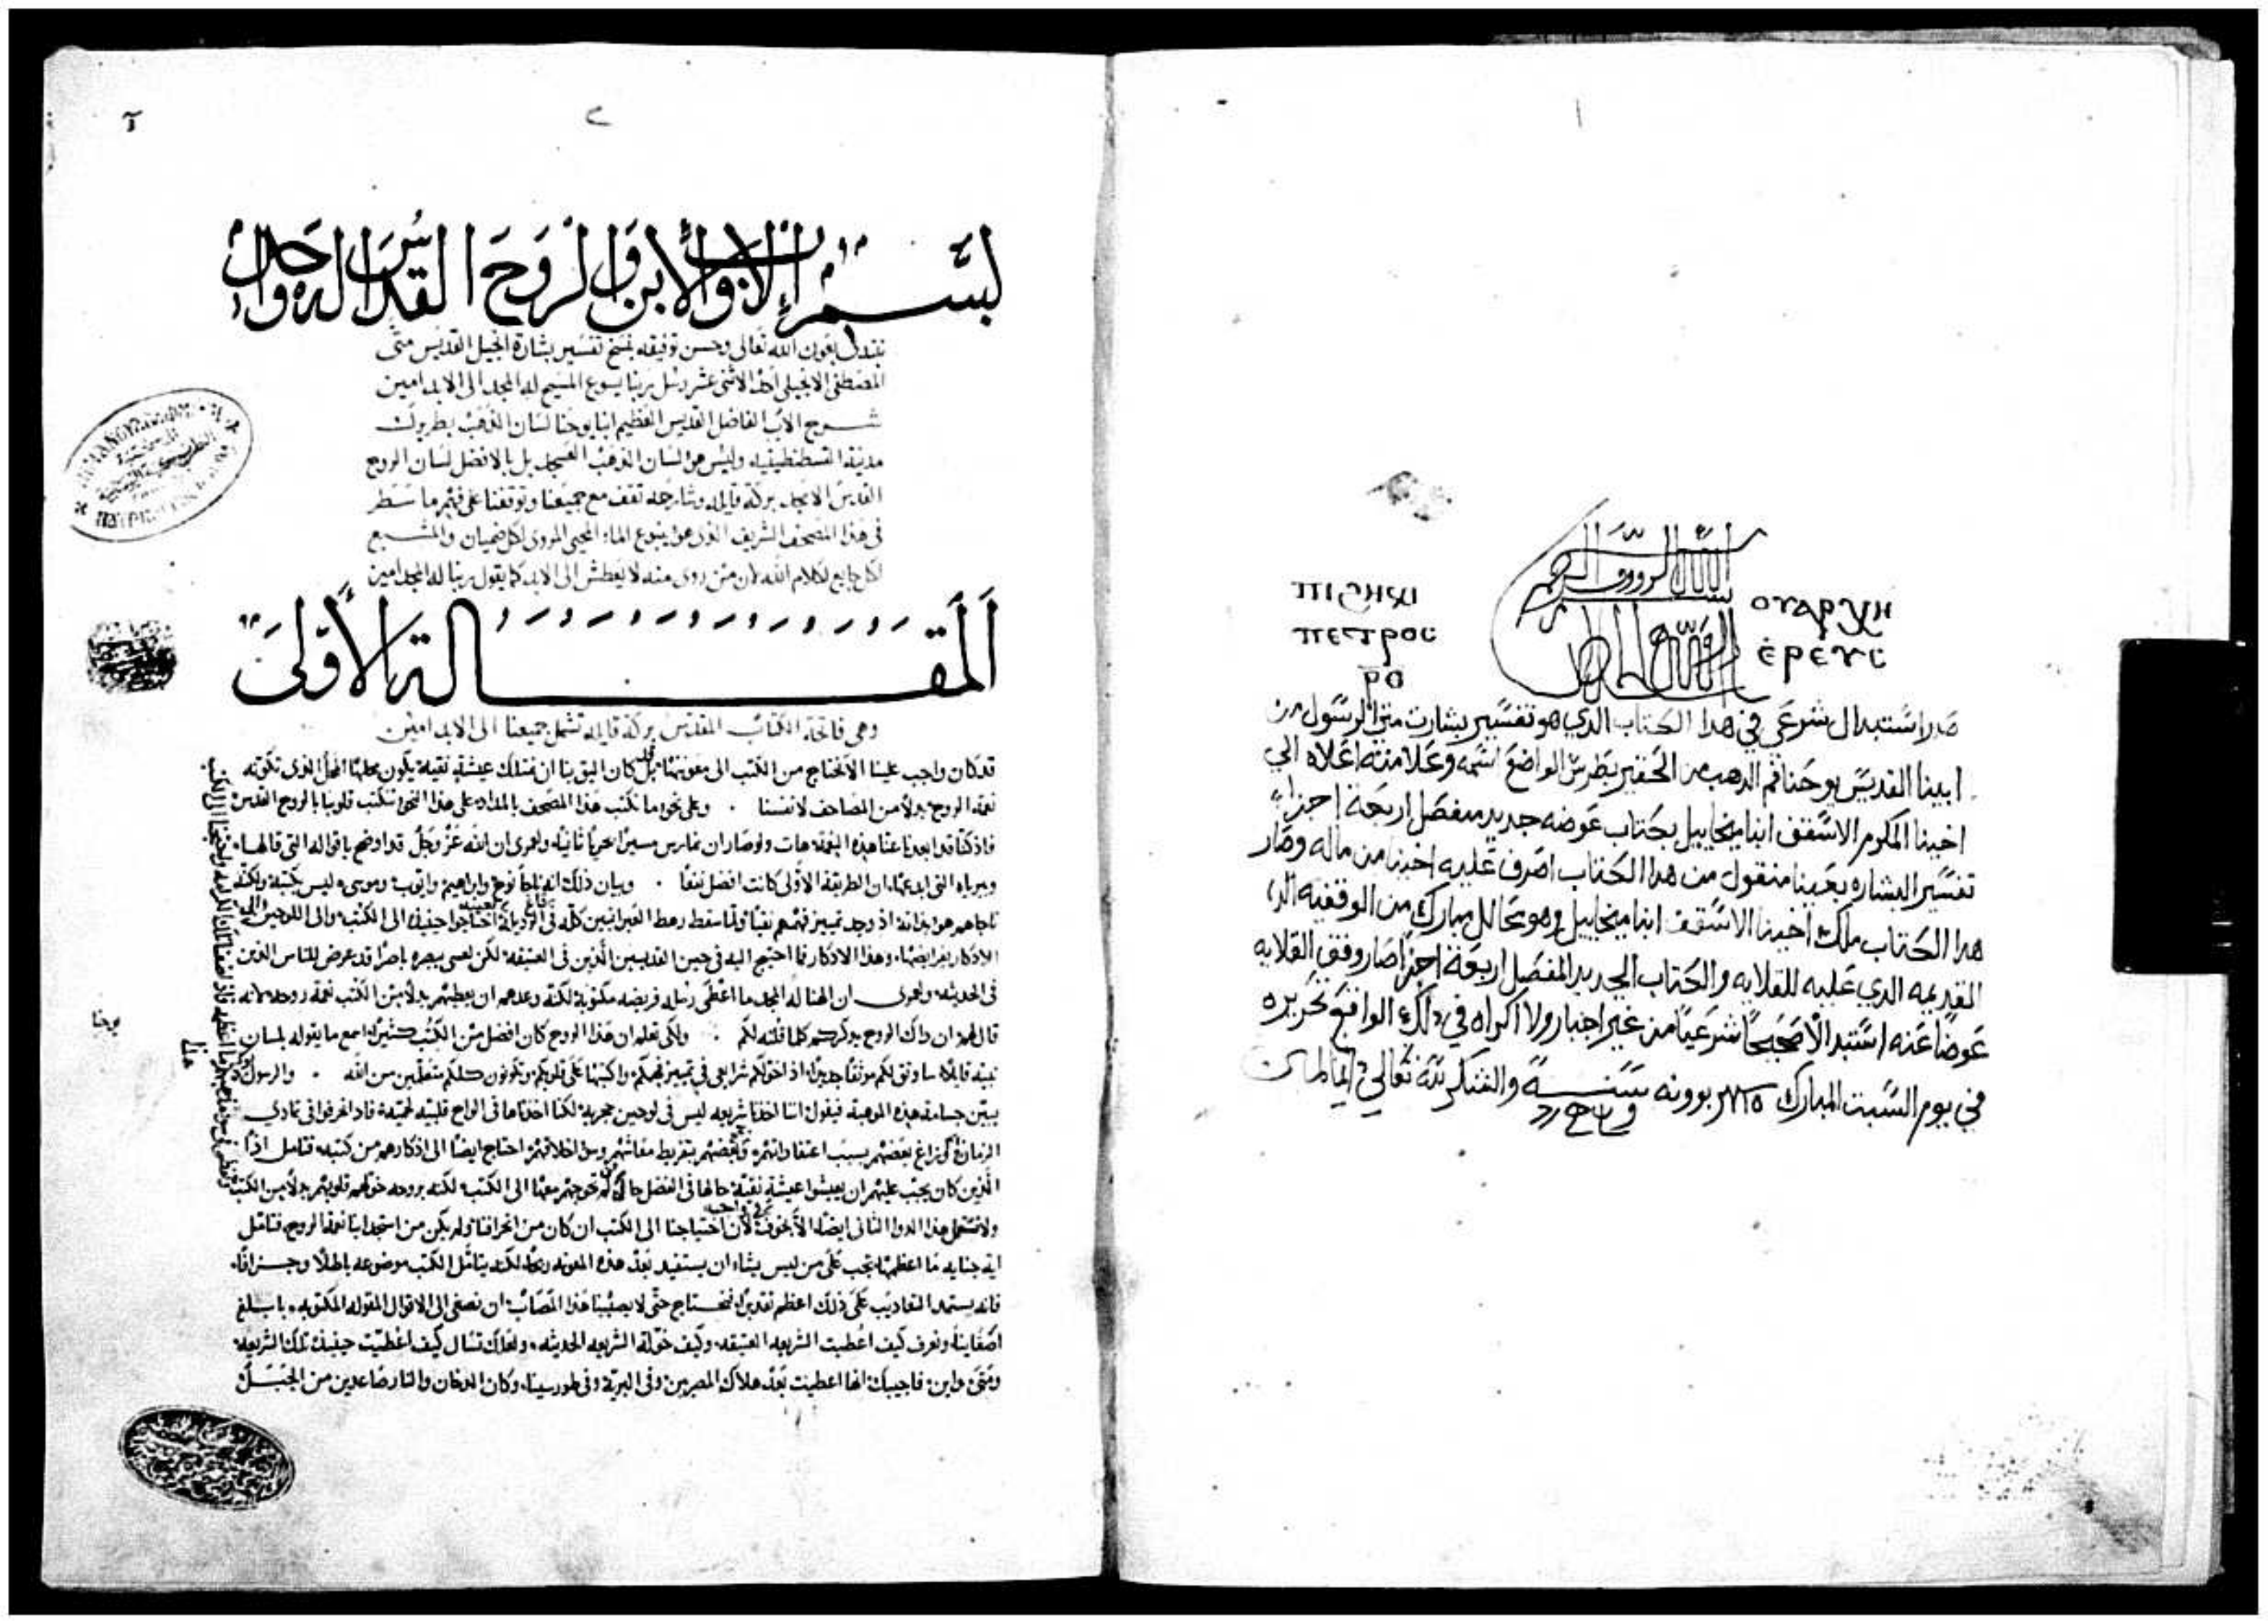 بسم الله الرووف الرحيم
ⲟⲩⲁⲣⲭⲏ
ⲉⲣⲉⲩⲥ
ⲡⲓϩⲏⲕⲓ
ⲡⲉⲧⲣⲟⲥ
ⲣⲑ
صار استبدال شرعي في هدا الكتاب الدي هو تفسير بشارت متي الرسول من
ابينا القديس يوحنا فم الدهب من الحقير بطرس الواضع اسمه وعلامته اعلاه الي
اخينا المكرم الاسقف انبا ميخاييل بكتاب عوضه جديد مفصل اربعة اجزاء
تفسير البشاره بعينها منقول من هدا الكتاب اصرف عليه اخينا من ماله وصار
هدا الكتاب ملك اخينا الاسقف انبا ميخاييل وهو محالل مبارك من الوقفيه
القديمه الدي عليه للقلايه والكتاب الجديد المفصل اربعة اجزا صار وقف القلايه
عوضا عنه استبدالا صحيحا شرعيا من غير اجبار ولا اكراه في دلك الواقع تحريره
في يوم السبت المبارك بوونه سنة والشكر لله تعالي دايما
٢
بسم الاب والابن والروح القدس اله واحد
نبتدى بعون الله تعالى وحسن توفيقه بنسخ تفسير بشارة انجيل القديس متى
المصطفى الانجيلى احد الاثنى عشر رسل ربنا يسوع المسيح له المجد الى الابد امين
شرح الاب الفاضل القديس العظيم انبا يوحنا لسان الذهب بطريرك
مدينة القسطنطينيه وليس هو لسان الذهب العسجد بل بالافضل لسان الروح
القدس بركة قايله وشارحه تقف مع جميعنا وتوقفنا على فهم ما سطر
فى هذا المصحف الشريف الذى هو ينبوع الماء المحيى المروى لكل ضميان والمشبع
لكل جايع لكلام الله لان من روى منه لا يعطش الى الابد كما يقول ربنا له المجد امين
المقالة الأولى
وهى فاتحة الكتاب المقدس بركة قايله تشمل جميعنا الى الابد امين
قد كان واجب علينا الا نحتاج من الكتب الى معونتها بل كان اليق بنا ان نمتلك عيشة نقية يكون محلها المحل الذى تكونه
نعمة الروح بدلا من المصاحف لانفسنا وعلى نحو ما نكتب هذا المصحف بالمداد على هذا النحو تنكتب قلوبنا بالروح القدس
فاذ كنا قد ابعدنا عنا هذه النعمة هات ولو صار ان نمارس مسيرا بحريا ثانيا ولعمرى ان الله عز وجل قد اوضح باقواله التى قالها
ان الطريقة الأولى كانت افضل نفعا وبيان ذلك انه ناجا نوح وابراهيم وايوب وموسى ليس بكتبه ولكنه
ناجاهم هو بذاته اذ وجد تمييز فهمهم نقيا ولما سقط رهط العبرانيين كله فى احتاجوا حينيذ الى الكتب والى اللوحين والى
الاذكار بفرايضها وهذا الاذكار فما احتيج اليه فى حين القديسين الذين فى العتيقه لكن لعسى يبصره باصرا قد عرض للناس الذين
فى الحديثه ولعمرى ان الهنا له المجد ما اعطى رسله فريضه مكتوبة لكنه وعدهم ان يعطيهم بدلا من الكتب نعمة روحه لانه
قال لهم ان ذاك الروح يذكركم كلما قلته لكم ولكى تعلم ان هذا الروح كان افضل من الكتب كثيرا اسمع ما يقوله بلسان
نبيه قايلا ساوثق لكم موثقا جديدا اذ اخولكم شرايعى فى تمييز فهمكم واكتبها على قلوبكم وتكونون كلكم متعلمين من الله والرسول
يبين جسامة هذه الموهبة فيقول اننا اخذنا شريعه ليس فى لوحين حجرية لكننا اخذناها فى الواح قلبيه لحمية فاذ انحرفوا فى تمادى
الزمان زاغ بعضهم بسبب اعتقاداتهم وبعضهم بتفريط معاشهم وسؤ اخلاقهم احتاج ايضا الى اذكارهم من كتبه فتامل اذا
الذين كان يجب عليهم ان يعيشوا عيشة نقية حالها فى الفضل حال من لم تحوجهم معها الى الكتب لكنه بروحه خولهم قلوبهم بدلا من الكتب
ولا نستعمل هذا الدوا الثانى ايضا لان احتياجنا الى الكتب ان كان من انحرافنا ولم يكن من استجدابنا نعمة الروح فتامل
اية جنايه ما اعظمها تجب على من ليس يشاء ان يستفيد بعد هذه المعونه لكنه يتامل الكتب موضوعه باطلا وجزافا
فانه يستمد التعاذيب على ذلك اعظم تعذيبا فنحتاج حتى لا يصيبنا هذا المصاب ان نصغى الى الاقوال المقوله المكتوبه بابلغ
اصغاينا ونعرف كيف اعطيت الشريعه العتيقه وكيف خولت الشريعه الحديثه ولعلك تسال كيف اعطيت حينيذ تلك الشريعه
ومتى واين فاجيبك انها اعطيت بعد هلاك المصريين وفى البرية وفى طور سينا وكان الدخان والنار صاعدين من الجبل